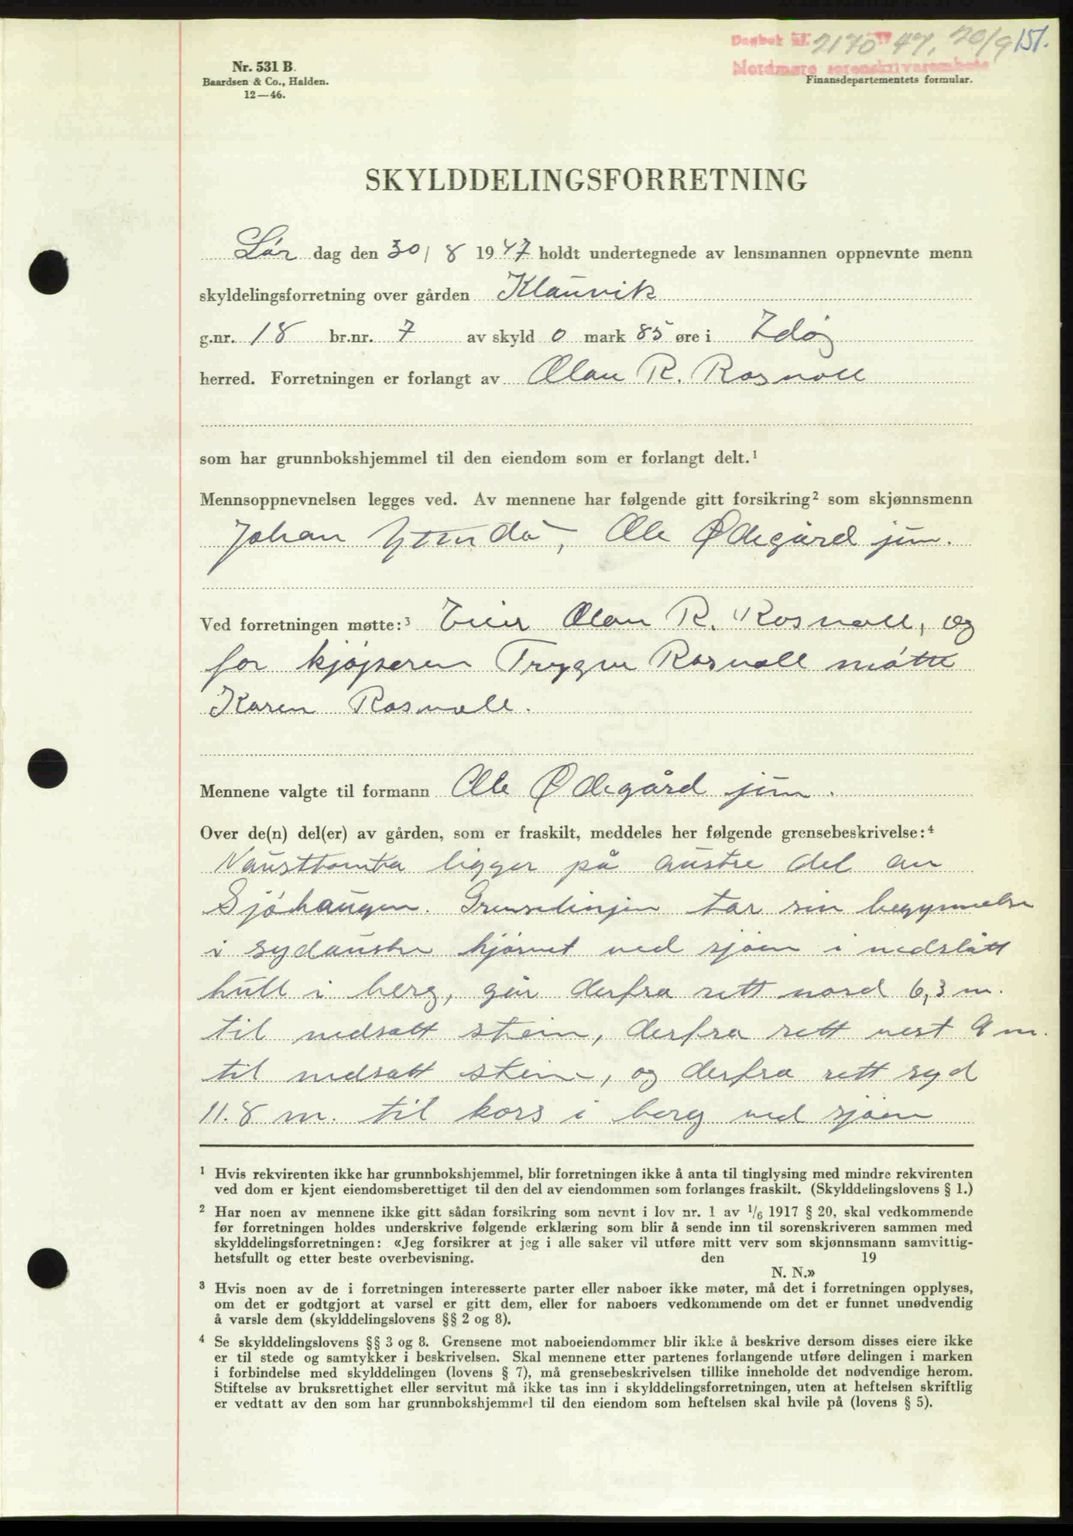 Dagbok nr. 2170 19 47, 20/9 151.
Nordmøre sorenskriverembete
Nr. 531 B.
Baardsen & Co., Halden.
12—46.
Finansdepartementets formular.
SKYLDDELINGSFORRETNING
Lør dag den 30/8 1947 holdt undertegnede av lensmannen oppnevnte menn
skyldelingsforretning over gården Klauvik
g.nr. 18 br.nr. 7 av skyld 0 mark 85 øre i Edøy
herred. Forretningen er forlangt av Olau R. Rosvoll
som har grunnbokshjemmel til den eiendom som er forlangt delt.¹
Mennsoppnevnelsen legges ved. Av mennene har følgende gitt forsikring² som skjønnsmenn
Johan Ytterdal, Ole Ødegård jun.
Ved forretningen møtte:³ Eier Olau R. Rosvoll, og
for kjøperen Trygve Rosvoll møtte
Karen Rosvoll.
Mennene valgte til formann Ole Ødegård jun.
Over de(n) del(er) av gården, som er fraskilt, meddeles her følgende grensebeskrivelse:⁴
Nausttomta ligger på austre del av
Sjøhaugen. Grenselinjen tar sin begynnelse
i sydaustre hjørnet ved sjøen i nedslått
hull i berg, går derfra rett nord 6,3 m.
til nedsatt stein, derfra rett vest 9 m.
til nedsatt stein, og derfra rett syd
11.8 m. til kors i berg ved sjøen
¹ Hvis rekvirenten ikke har grunnbokshjemmel, blir forretningen ikke å anta til tinglysing med mindre rekvirenten
ved dom er kjent eiendomsberettiget til den del av eiendommen som forlanges fraskilt. (Skylddelingslovens § 1.)
² Har noen av mennene ikke gitt sådan forsikring som nevnt i lov nr. 1 av 1/6 1917 § 20, skal vedkommende
før forretningen holdes underskrive følgende erklæring som blir å sende inn til sorenskriveren sammen med
skylddelingsforretningen: «Jeg forsikrer at jeg i alle saker vil utføre mitt verv som skjønnsmann samvittig-
hetsfullt og etter beste overbevisning. den 19
N. N.»
³ Hvis noen av de i forretningen interesserte parter eller naboer ikke møter, må det i forretningen opplyses,
om det er godtgjort at varsel er gitt dem, eller for naboers vedkommende om det er funnet unødvendig
å varsle dem (skylddelingslovens §§ 2 og 8).
⁴ Se skylddelingslovens §§ 3 og 8. Grensene mot naboeiendommer blir ikke å beskrive dersom disses eiere ikke
er til stede og samtykker i beskrivelsen. Skal mennene etter partenes forlangende utføre delingen i marken
i forbindelse med skylddelingen (lovens § 7), må grensebeskrivelsen tillike inneholde det nødvendige herom.
Stiftelse av bruksrettighet eller servitut må ikke tas inn i skylddelingsforretningen, uten at heftelsen skriftlig
er vedtatt av den som har grunnbokshjemmel til den eiendom som heftelsen skal hvile på (lovens § 5).